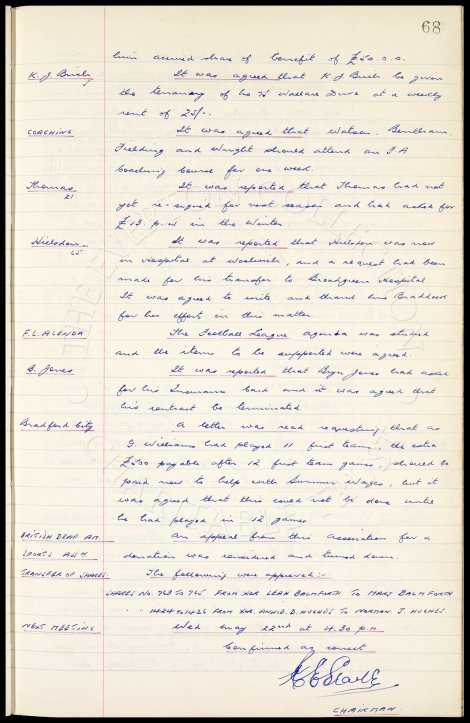 68
him accrued share of benefit of £50.0.0.
K. J. It was agreed that K J be given
the tenancy of his 75 Wallace Drive at a weekly
rent of 25/-.
COACHING It was agreed that Watson, Bentham,
Fielding and Wright should attend an F A
Coaching Course for one week.
Thomas It was reported that Thomas had not
21.
yet re-signed for next season and had asked for
£13. p.w in the Winter.
It was reported that was now
65
in Hospital at Woolwich, and a request had been
made for his transfer to Broadgreen Hospital.
It was agreed to write and thank Mrs Braddock
for her efforts in this matter.
F.L. AGENDA The Football League agenda was studied
and the items to be supported were agreed.
B. Jones It was reported that Bryn Jones had asked
for his Insurance Card and it was agreed that
his contract be terminated.
Bradford City A letter was read requesting that as
G. Williams had played 11 first team, the extra
£500 payable after 12 first team games, should be
paid now to help with Summer Wages, but it
was agreed that this could not be done until
he had played in 12 games.
BRITISH DEAF AM. An appeal from this Association for a
SPORTS ASSN donation was considered and turned down.
TRANSFER OF SHARES. The following were approved:-
SHARES NO. 763 TO 765 FROM XOR LEAH BALMFORTH TO MARY BALMFORTH
" " 1424 TO 1426 FROM XOR. D. HUGHES TO NORMAN J. HUGHES.
NEXT MEETING Wed May 22nd at 4.30 p.m
Confirmed as correct
CHAIRMAN.